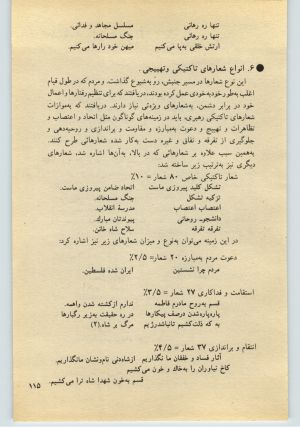 تنها ره رهائی مسلسل مجاهد و فدائی.
تنها ره رهائی جنگ مسلحانه.
ارتش خلقی به‌پا می‌کنیم میهن خود رارها می‌کنیم.
● ۶. انواع شعارهای تاکتیکی وتهییجی.
این نوع شعارها در مسیر جنبش، رو‌به‌شیوع گذاشت. و مردم که در طول قیام
اغلب به‌طور خود‌به‌خودی عمل کرده بودند، دریافتند که برای تنظیم رفتارها و اعمال
خود در برابر دشمن، به‌شعارهای ویژه‌ئی نیاز دارند. دریافتند که به‌موازات
شعارهای تاکتیکی رهبری، باید در زمینه‌های گوناگون مثل اتحاد و اعتصاب و
تظاهرات و تهییج و دعوت به‌مبارزه و مقاومت و براندازی و روحیه‌دهی و
جلوگیری از تفرقه و نفاق و غیره دست به‌کار شده شعارهائی طرح کنند.
به‌همین سبب علاوه بر شعارهائی که در بالا، به‌آن‌ها اشاره شد، شعارهای
دیگری نیز به‌ترتیب زیر ساخته شد:
شعار تاکتیکی خاص ۸۰ شعار = ۱۰٪
تشکل کلید پیروزی ماست اتحاد ضامن پیروزی ماست.
تزکیه تشکل جنگ مسلحانه.
اعتصاب اعتصاب مدرسهٔ انقلاب.
دانشجو- روحانی پیوندتان مبارک.
تفرقه تفرقه سلاح شاه خائن.
در این زمینه می‌توان به‌نوع و میزان شعارهای زیر نیز اشاره کرد:
دعوت مردم به‌مبارزه ۲۰ شعار= ۲/۵٪
مردم چرا نشستین ایران شده فلسطین.
استقامت و فداکاری ۲۷ شعار = ۳/۵٪
قسم به‌روح مادرم فاطمه ندارم ازکشته شدن واهمه.
پاره‌پاره‌شدن درصف پیکارها در ره حقیقت به‌زیر رگبارها
به که ذلت‌کشیم تانباشدرژیم مرگ بر شاه.(۲)
انتقام و براندازی ۳۷ شعار = ۴/۵٪
آثار فساد و خفقان ما نگذاریم ازشاه‌دنی نام‌ونشان مانگذاریم.
کاخ نیاوران را به‌خاک و خون می‌کشیم
قسم به‌خون شهدا شاه ترا می‌کشیم.
۱۱۵